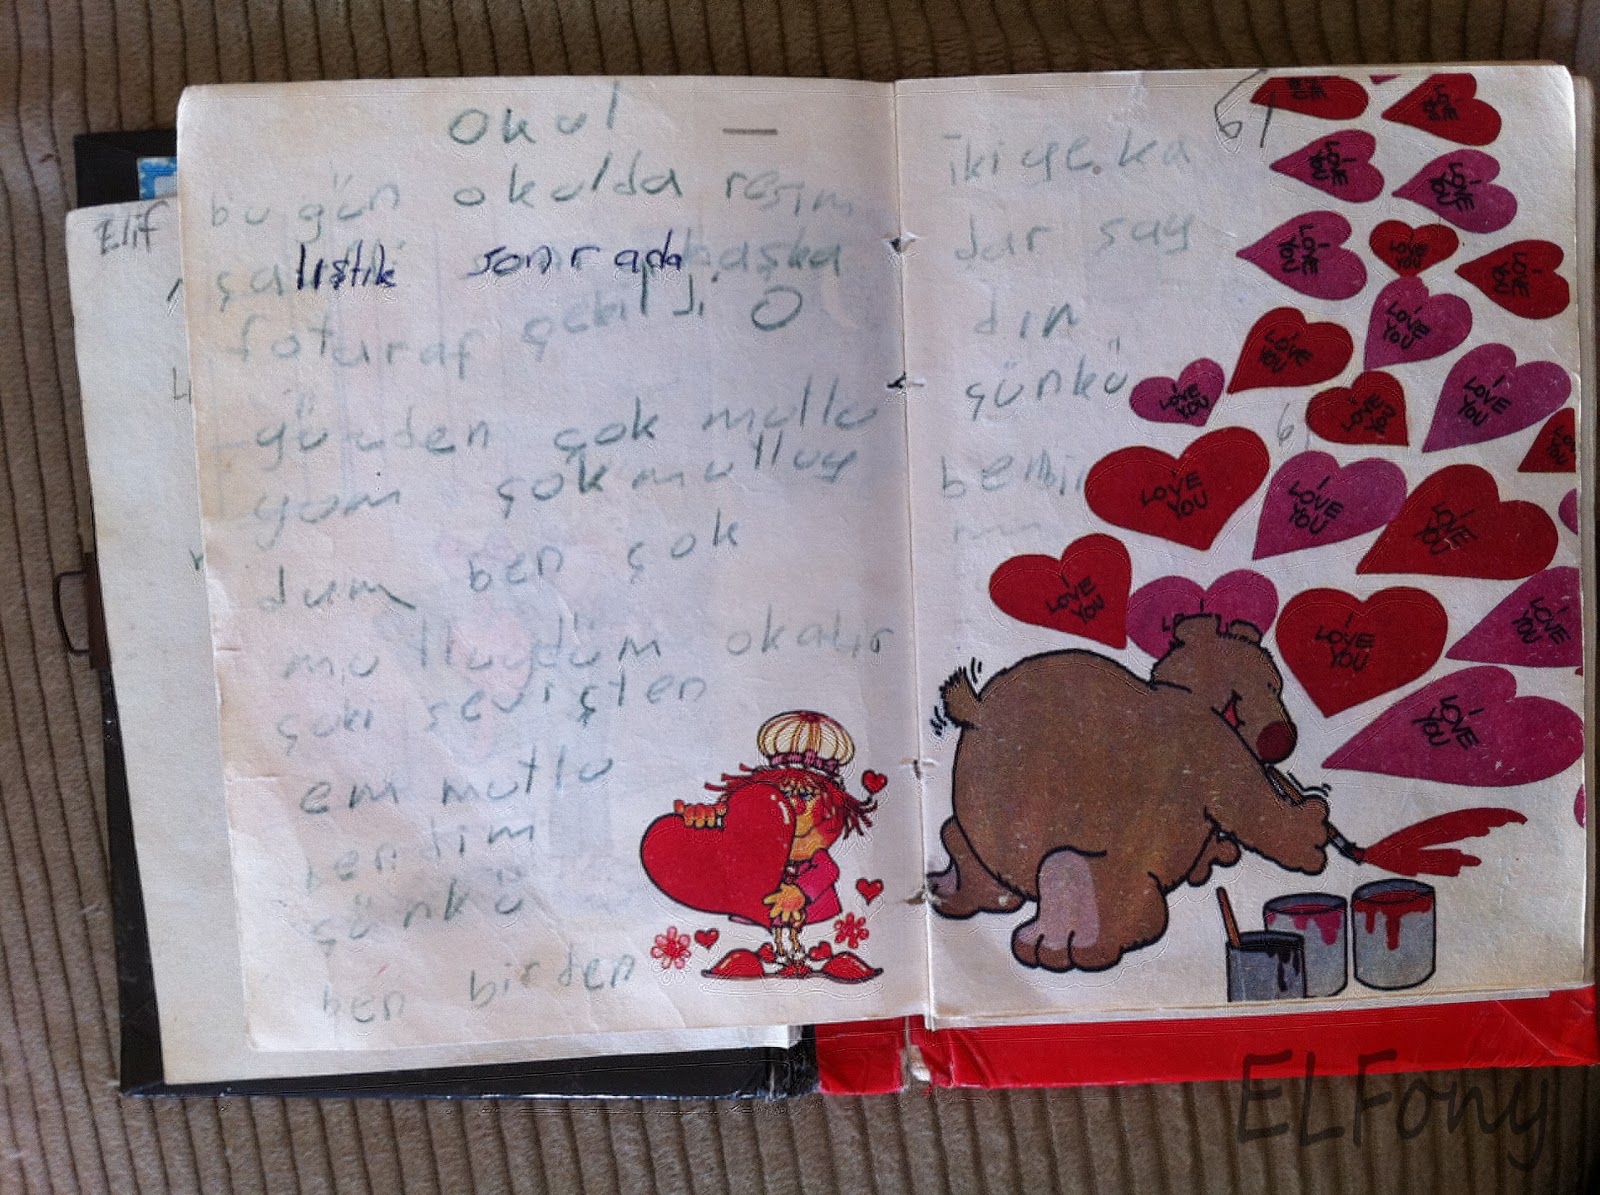 Elif
okul
bu gün okulda resim
çalıştık sonrada başka
foturaf çekildi O
yüzden çok mutlu
yom çok mutluy
dum ben çok
mutluydum okadar
çok
em mutlu
çünkü
ben birden
61
ikiye ka
dar say
dın
çünkü
61
I LOVE YOU
I LOVE YOU
I LOVE YOU
I LOVE YOU
I LOVE YOU
I LOVE YOU
I LOVE YOU
I LOVE YOU
I LOVE YOU
I LOVE YOU
I LOVE YOU
I LOVE YOU
I LOVE YOU
I LOVE YOU
I LOVE YOU
I LOVE YOU
I LOVE YOU
I LOVE YOU
I LOVE YOU
ELFony